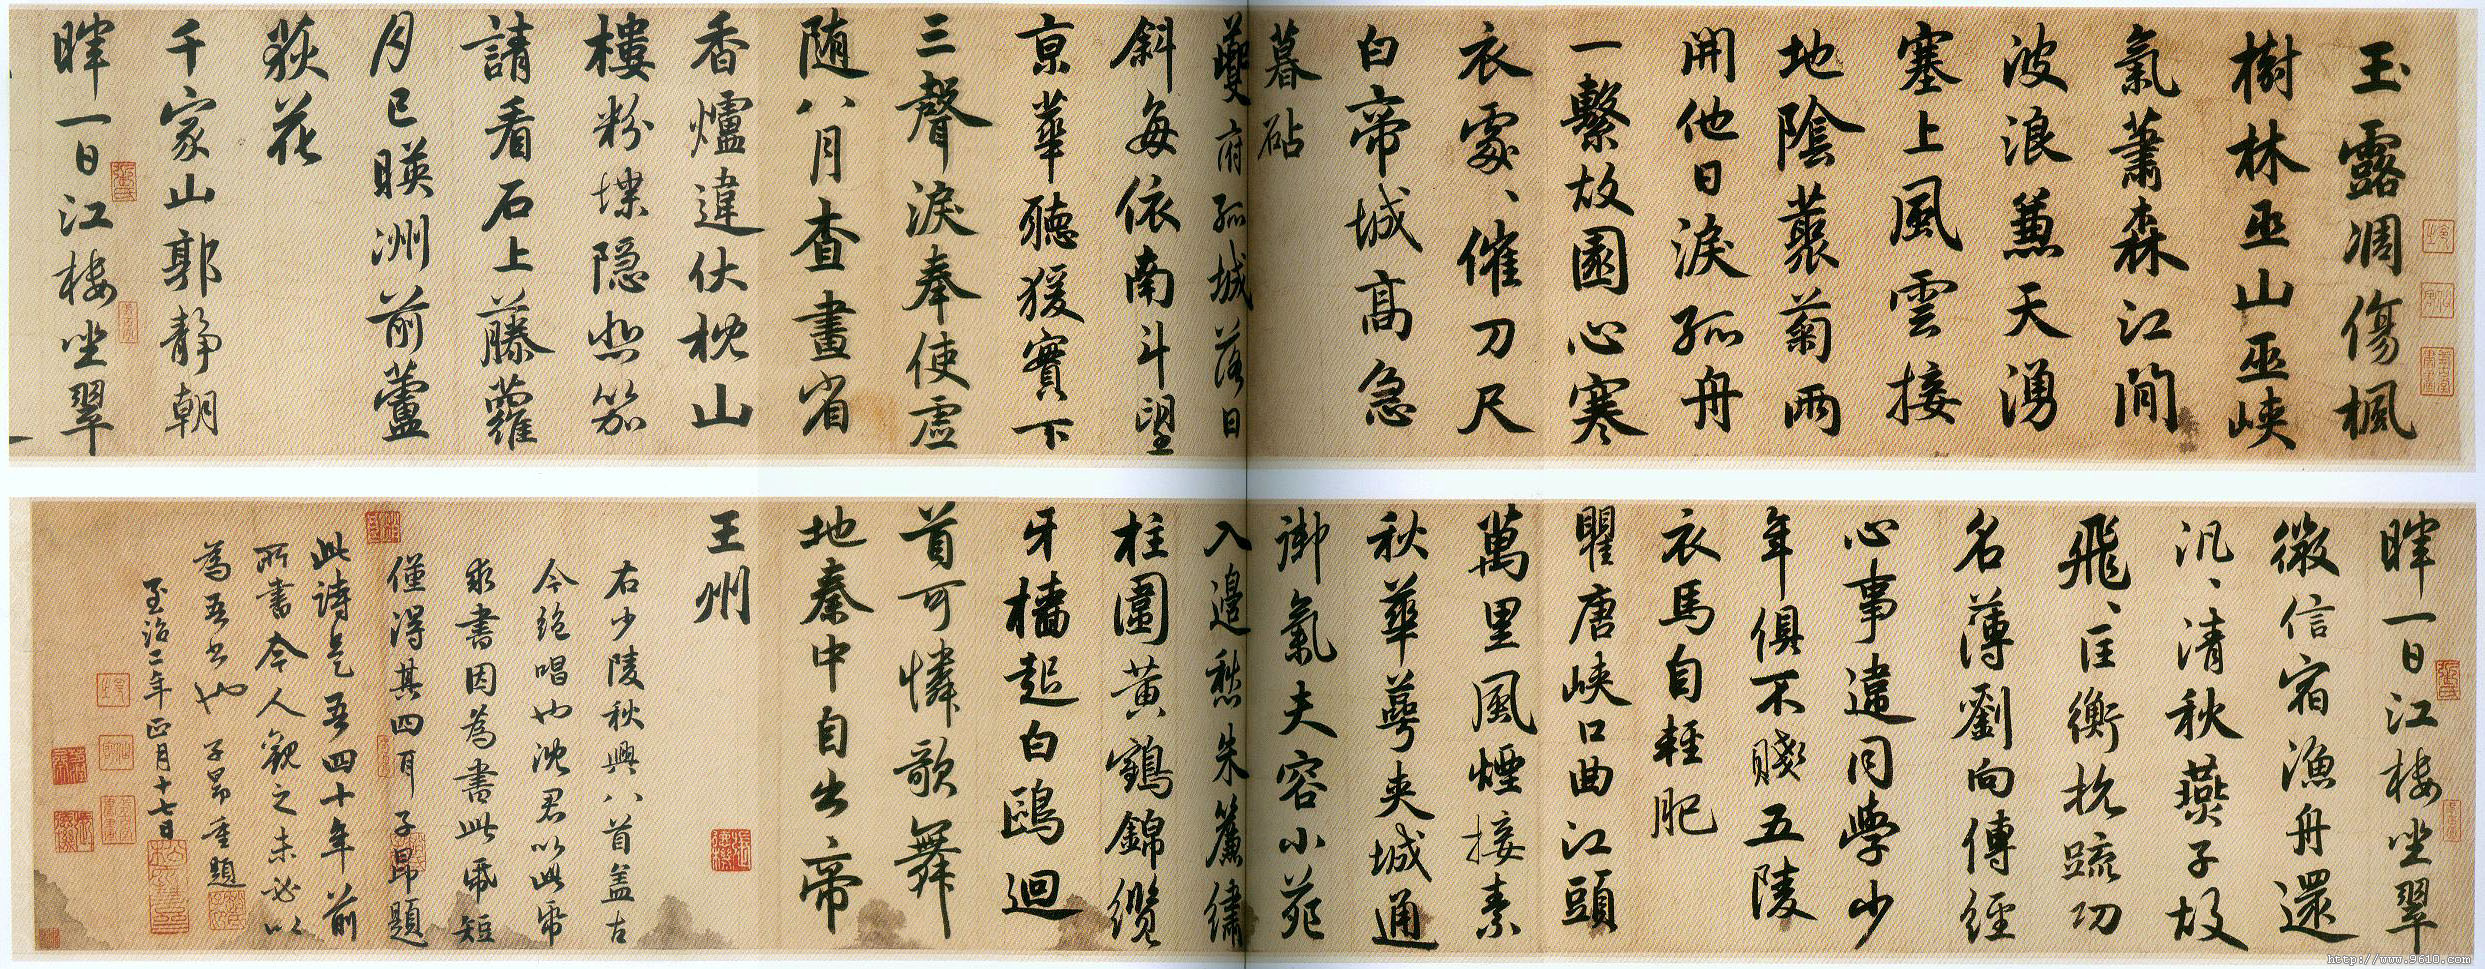 玉露凋傷楓
樹林巫山巫峽
氣蕭森江間
波浪兼天湧
塞上風雲接
地陰藂菊兩
開他日淚孤舟
一繫故園心寒
衣處、催刀尺
白帝城髙急
暮砧
夔府孤城落日
斜每依南斗望
京華聽猨實下
三聲淚奉使虛
随八月查畫省
香爐違伏枕山
樓粉堞隠悲笳
請看石上藤蘿
月已暎洲前蘆
荻花
千家山郭静朝
暉一日江樓坐翠
暉一日江樓坐翠
微信宿漁舟還
汎、清秋燕子故
飛、匡衡抗疏功
名薄劉向傳經
心事違同學少
年俱不賤五陵
衣馬自輕肥
瞿唐峽口曲江頭
萬里風煙接素
秋華萼夾城通
御氣夫容小苑
入邊愁朱簾繡
柱圍黃鶴錦纜
牙檣起白鷗迴
首可憐歌舞
地秦中自古帝
王州
右少陵秋興八首盖古
今絶唱也沈君以此帋
求書因為書此帋短
僅得其四耳子昂題
此詩是吾四十年前
所書今人觀之未必以
為吾書也子昂重題
至治二年正月十七日
http://www.9610.com